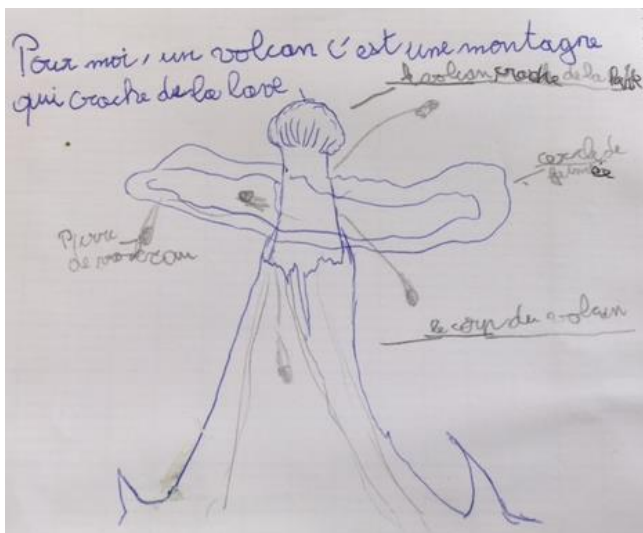 Pour moi, un volcan c'est une montagne
qui crache de la lave
le volcan crache de la
cercle de
fumée
Pierre
de volcan
le corp du volcan